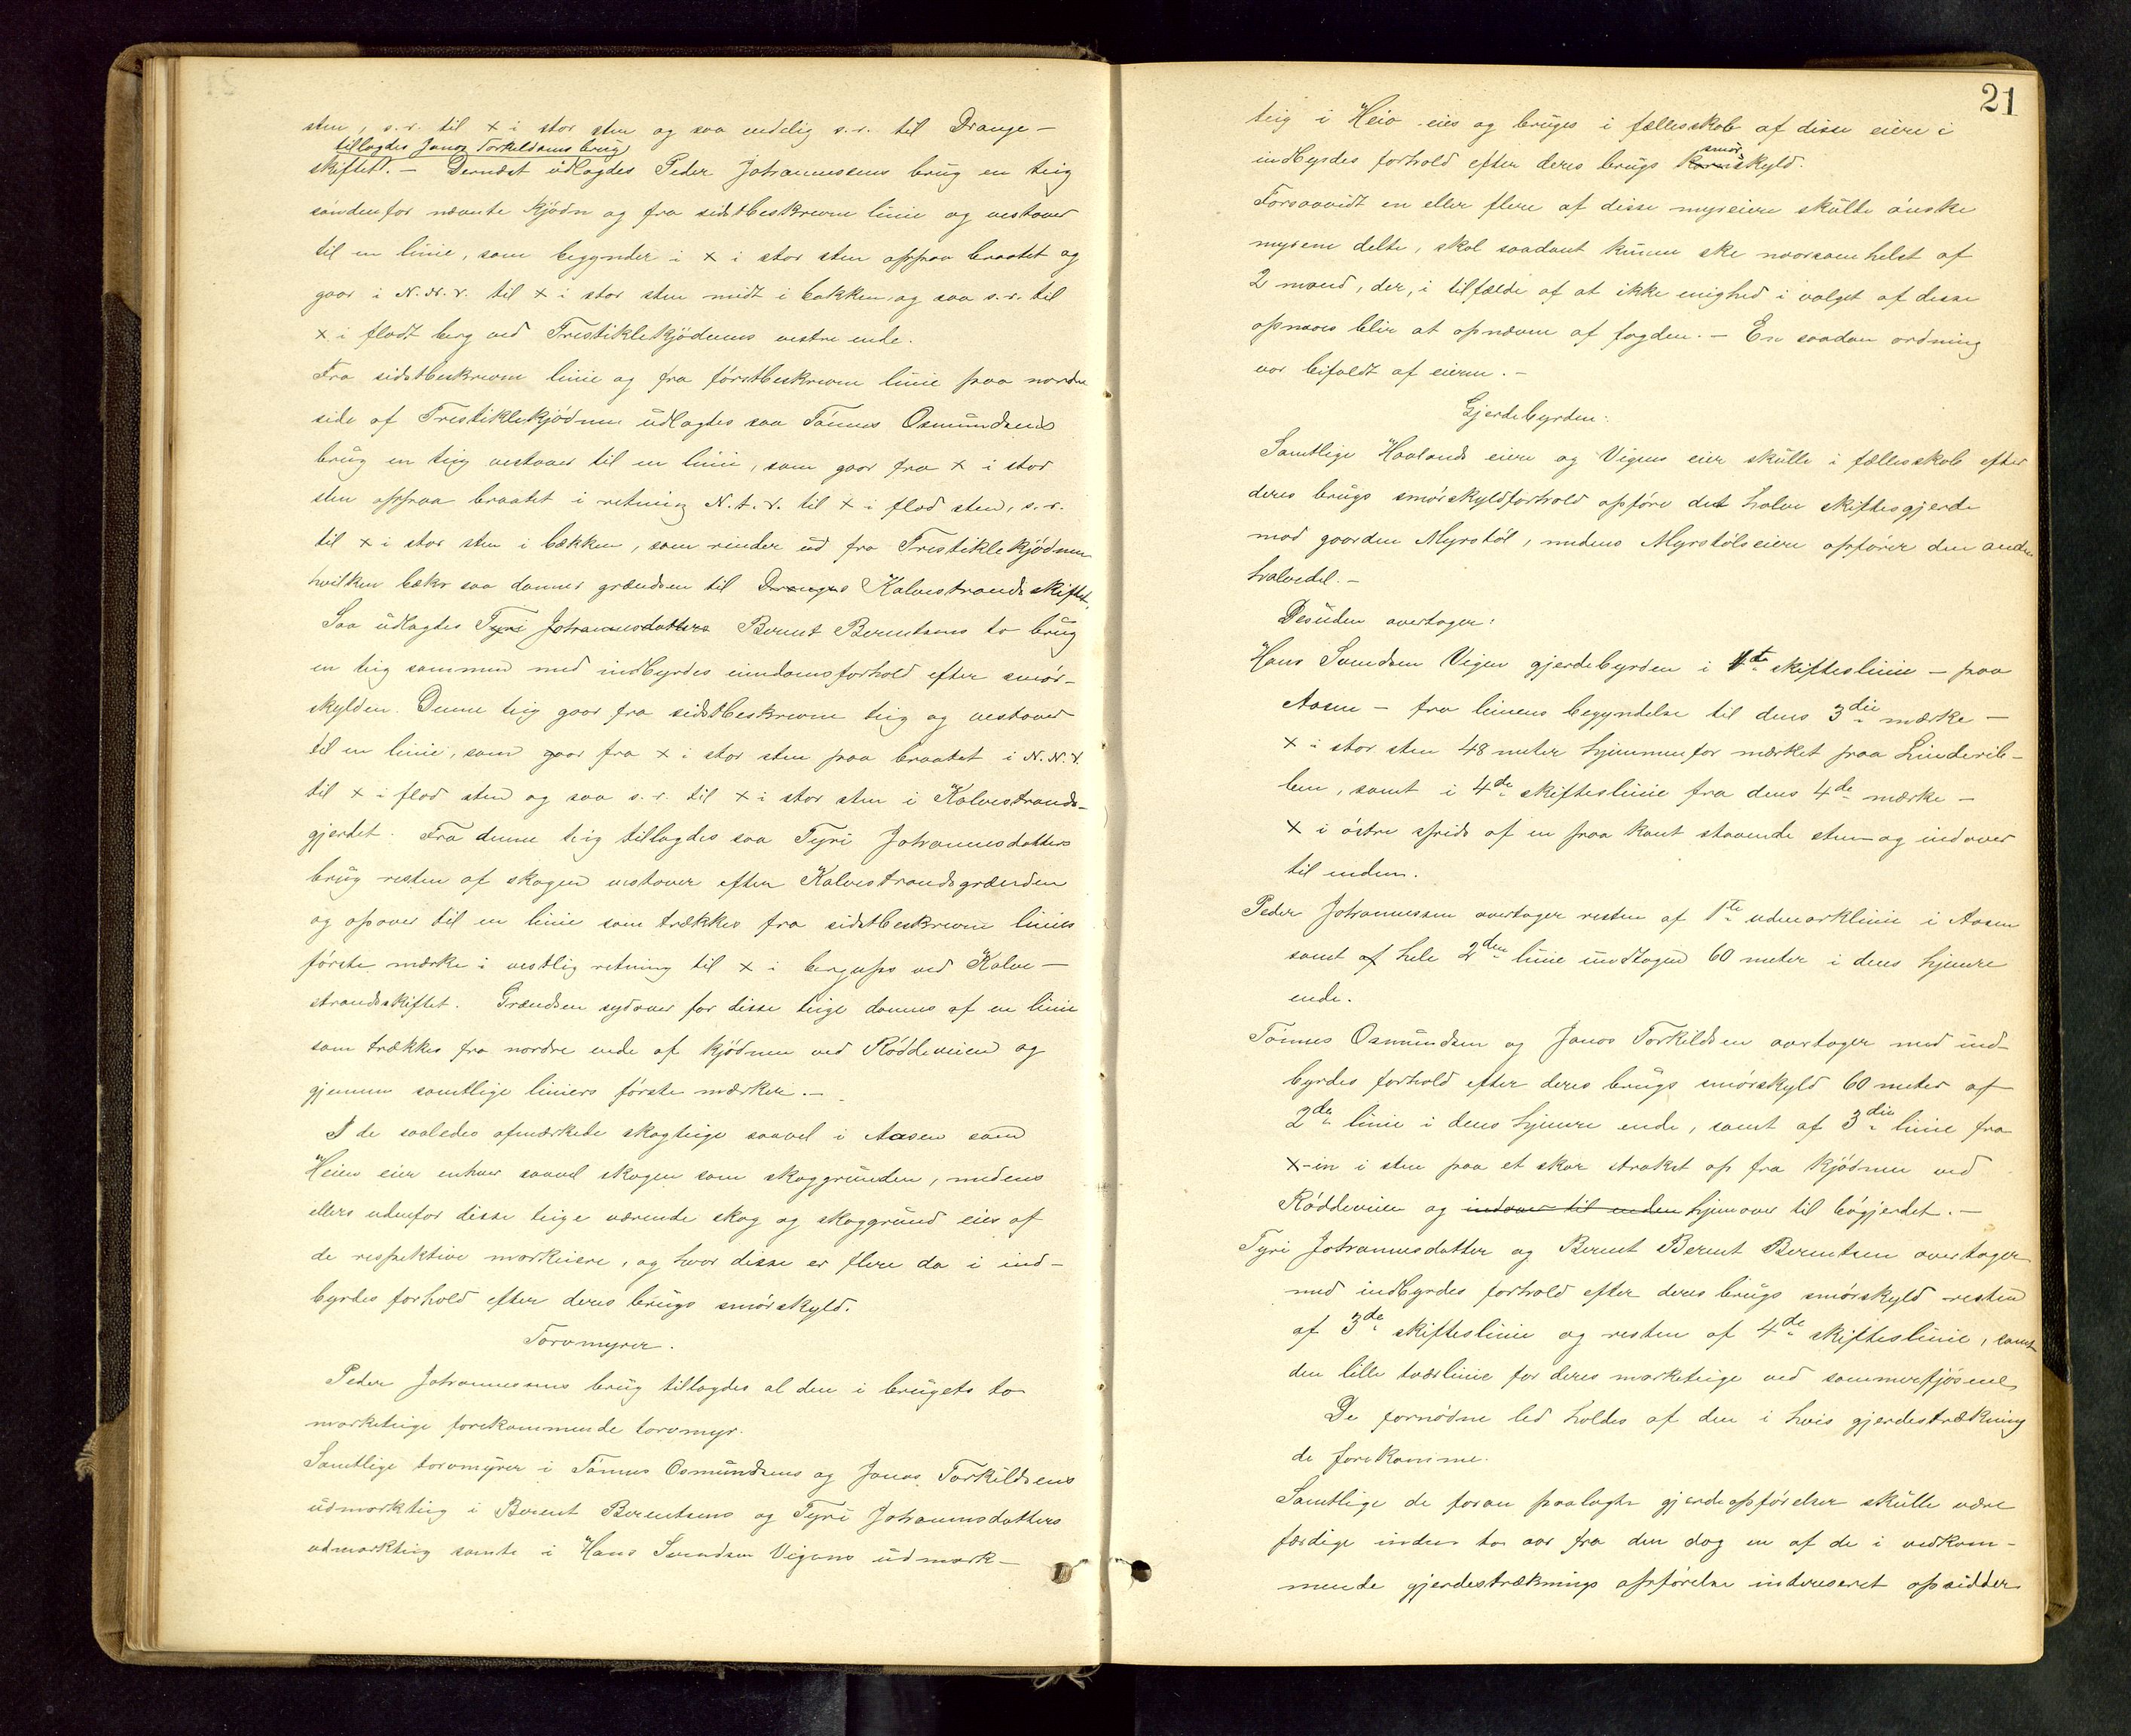 sten, s. r. til x i stor sten og saa endelig s. r. til Drange-
tillagdes Janos Torkildsens brug
skiftet. - Dernæst udlagdes Peder Johannessens brug en teig
søndenfor nævnte kjødn og fra sidstbeskrevne linie og vestover
til en linie, som begynder i x i stor sten oppaa braatet og
gaar i N.N.V. til x i stor sten midt i bakken og saa s. r. til
x i fladt berg ved Trestiklekjødnens vestre ende.
Fra sidstbeskrevne linie og fra førstbeskrevne linie paa nordre
side af Trestiklekjødnen udlagdes saa Tønnes Osmundsens
brug en teig vestover til en linie, som gaar fra x i stor
sten oppaa braatet i retning N.t.V. til x i flad sten, s. r.
til x i stor sten i bækken, som rinder ud fra Trestiklekjødnen
hvilken bæk saa danner grændsen til Dranges Kalvestrandsskiftet.
Saa udlagdes Tyri Johannesdatters Bernt Berntsens to brug
en teig sammen med indbyrdes eiendomsforhold efter smør-
skylden. Denne teig gaar fra sidstbeskrevne teig og vestover
til en linie, som gaar fra x i stor sten paa braatet i N.N.V.
til x i flad sten og saa s. r. til x i stor sten i Kalvestrands-
gjerdet. Fra denne teig tillagdes saa Tyri Johannesdatters
brug resten af skogen vestover efter Kalvestrandsgrændsen
og opover til en linie som trækkes fra sidstbeskrevne linies
første mærke i vestlig retning til x i bergnips ved Kalve-
strandsskiftet. Grændsen sydover for disse teige dannes af en linie
som trækkes fra nordre ende af kjødnen ved Røddeveien og
gjennem samtlige liniers første mærker. -
I de saaledes afmærkede skogteige saavel i Aasen som
Heien eier enhver saavel skogen som skoggrunden, medens
ellers udenfor disse teige værende skog og skoggrund eies af
de respektive markeiere, og hvor disse er flere da i ind-
byrdes forhold efter deres brugs smørskyld.
Torvmyrer.
Peder Johannessens brug tillagdes al den i brugets to
marketeige forekommende torvmyr.
Samtlige torvmyrer i Tønnes Osmundsens og Janos Torkildsens
udmarkteig i Berent Berentsens og Tyri Johannesdatters
udmarkteig samt i Hans Svendsen Vigens udmark-
21
teig i Heia eies og bruges i fællesskab af disse eiere i
indbyrdes forhold efter deres brugs korn smørskyld.
Forsaavidt en eller flere af disse myreiere skulde ønske
myrene delte, skal saadant kunne ske naarsomhelst af
2 mænd, der, i tilfælde af at ikke enighed i valget af disse
opnaaes blir at opnævne af fogden. - En saadan ordning
var bifaldt af eierne. -
Gjerdebyrden:
Samtlige Haalands eiere og Vigens eier skulle i fællesskab efter
deres brugs smørskyldforhold opføre det halve skiftesgjerde
mod gaarden Myrstøl, medens Myrstøls eiere opfører den anden
halvedel. -
Desuden overtager:
Hans Svendsen Vigen gjerdebyrden i 1ste skifteslinie - paa
Aasen - fra liniens begyndelse til dens 3die mærke -
x i stor sten 48 meter hjemmenfor mærket paa Linderib-
ben, samt i 4de skifteslinie fra dens 4de mærke -
x i østre spids af en paa kant staaende sten - og indover
til enden.
Peder Johannessen overtager resten af 1ste udmarklinie i Aasen
samt af hele 2den linie undtagen 60 meter i dens hjemre
ende.
Tønnes Osmundsen og Janos Torkildsen overtager med ind-
byrdes forhold efter deres brugs smørskyld 60 meter af
2den linie i dens hjemre ende, samt af 3die linie fra
x-in i sten paa et skar strakst op fra kjødnen ved
Røddeveien og indover til enden hjemover til bøgjerdet. -
Tyri Johannesdatter og Bernt Bernt Berntsen overtager
med indbyrdes forhold efter deres brugs smørskyld resten
af 3de skifteslinie og resten af 4de skifteslinie, samt
den lille tværlinie for deres marketeige ved sommerfjøsene.
De fornødne led holdes af den i hvis gjerdestrækning
de forekomme.
Samtlige de foran paalagte gjerdeopførelser skulle være
færdige inden to aar fra den dag en af de i vedkom-
mende gjerdestræknings opførelse interesseret opsidder